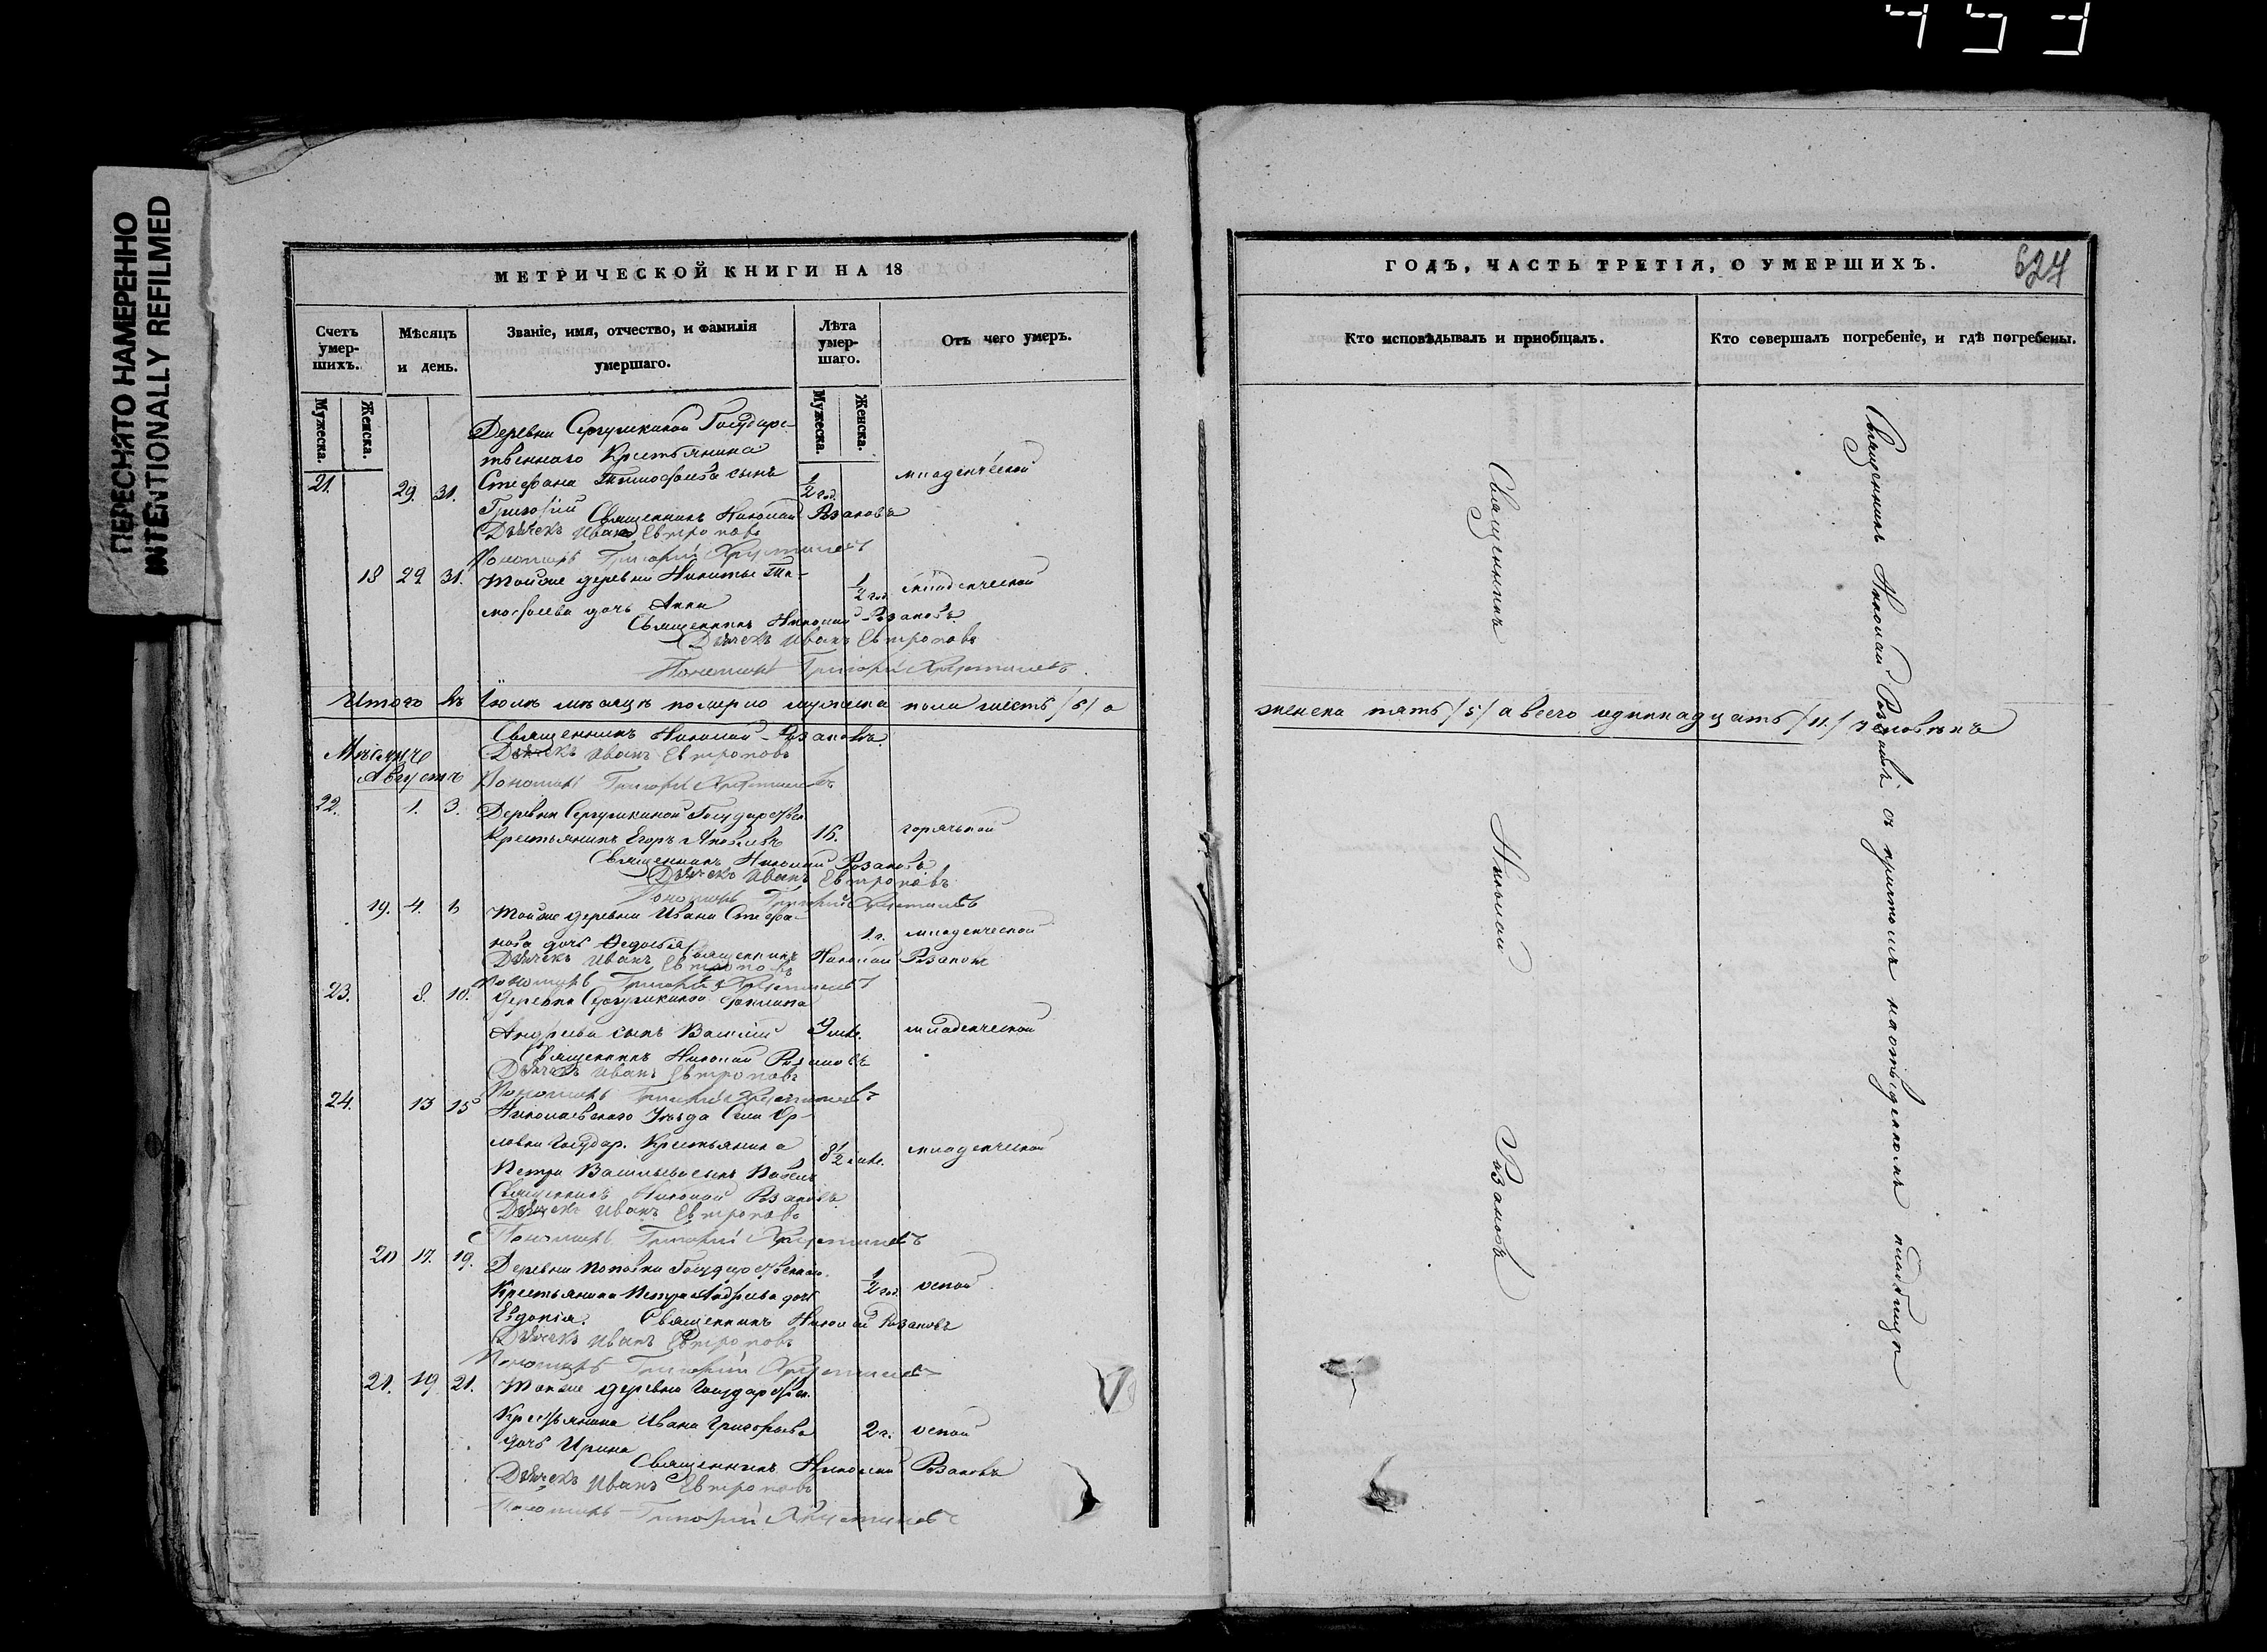 453
ПЕРЕСНЯТО НАМЕРЕННО
INTENTIONALLY REFILMED
МЕТРИЧЕСКОЙ КНИГИ НА 18
Счетъ умер-шихъ.
Мѣсяцъ и день.
Званіе, имя, отчество, и фамилія умершаго.
Лѣта умер-шаго.
Отъ чего умеръ.
Мужеска.
Женска.
Мужеска.
Женска.
Деревни Сергушкиной Государс-
твеннаго Крестьянина
21. 29. 31. Стефана Тимофеева сынъ ½ год. младенческой
Григорій Священникъ Николай Розановъ
Дьячекъ Иванъ Евтроповъ
Пономарь Григорій
18 29 31. Тойже деревни Никиты Ти- ½ год. младенческой
мофеева дочь Анна
Священникъ Николай Розановъ
Дьячекъ Иванъ Евтроповъ
Пономарь Григорій
Итого въ Іюлѣ мѣсяцѣ померло мужеска пола шесть /6/ а
Священникъ Николай Розановъ
Мѣсяцъ Дьячекъ Иванъ Евтроповъ
Августъ Пономарь Григорій
22. 1. 3. Деревни Сергушкиной Государствен
Крестьянинъ Егоръ Яковлевъ горячкой
Священникъ Николай Розановъ
Дьячекъ Иванъ Евтроповъ
Пономарь Григорій
19. 4. 6 Тойже деревни Ивана Стефа-
нова дочь Федосья 1 г. младенческой
Священникъ Николай Розановъ
Дьячекъ Иванъ Евтроповъ
Пономарь Григорій
23. 8. 10. Деревни Сергушкиной
Андреева сынъ Василій младенческой
Священникъ Николай Розановъ
Дьячекъ Иванъ Евтроповъ
Пономарь Григорій
24. 13 15 Николаевскаго Уѣзда Села Ор-
ловки Государ. Крестьянина 8½ младенческой
Петра Васильева сынъ Павелъ
Священникъ Николай Розановъ
Дьячекъ Иванъ Евтроповъ
Пономарь Григорій
20 17. 19. Деревни Поповки Государственнаго
Крестьянина Петра Андреева дочь ½ год. оспой
Евдокія. Священникъ Николай Розановъ
Дьячекъ Иванъ Евтроповъ
Пономарь Григорій
21. 19 21. Тойже деревни Государствен
Крестьянина Ивана Григорьева 2 г. оспой
дочь Ирина
Священникъ Николай Розановъ
Дьячекъ Иванъ Евтроповъ
Пономарь Григорій
ГОДЪ, ЧАСТЬ ТРЕТІЯ, О УМЕРШИХЪ.
624
Кто исповѣдывалъ и пріобщалъ.
Кто совершалъ погребеніе, и гдѣ погребены.
женска пять /5/ а всего одиннадцать /11./ человѣкъ
Священникъ Николай Розановъ
Священникъ Николай Розановъ съ причтомъ на отведенномъ кладбищѣ